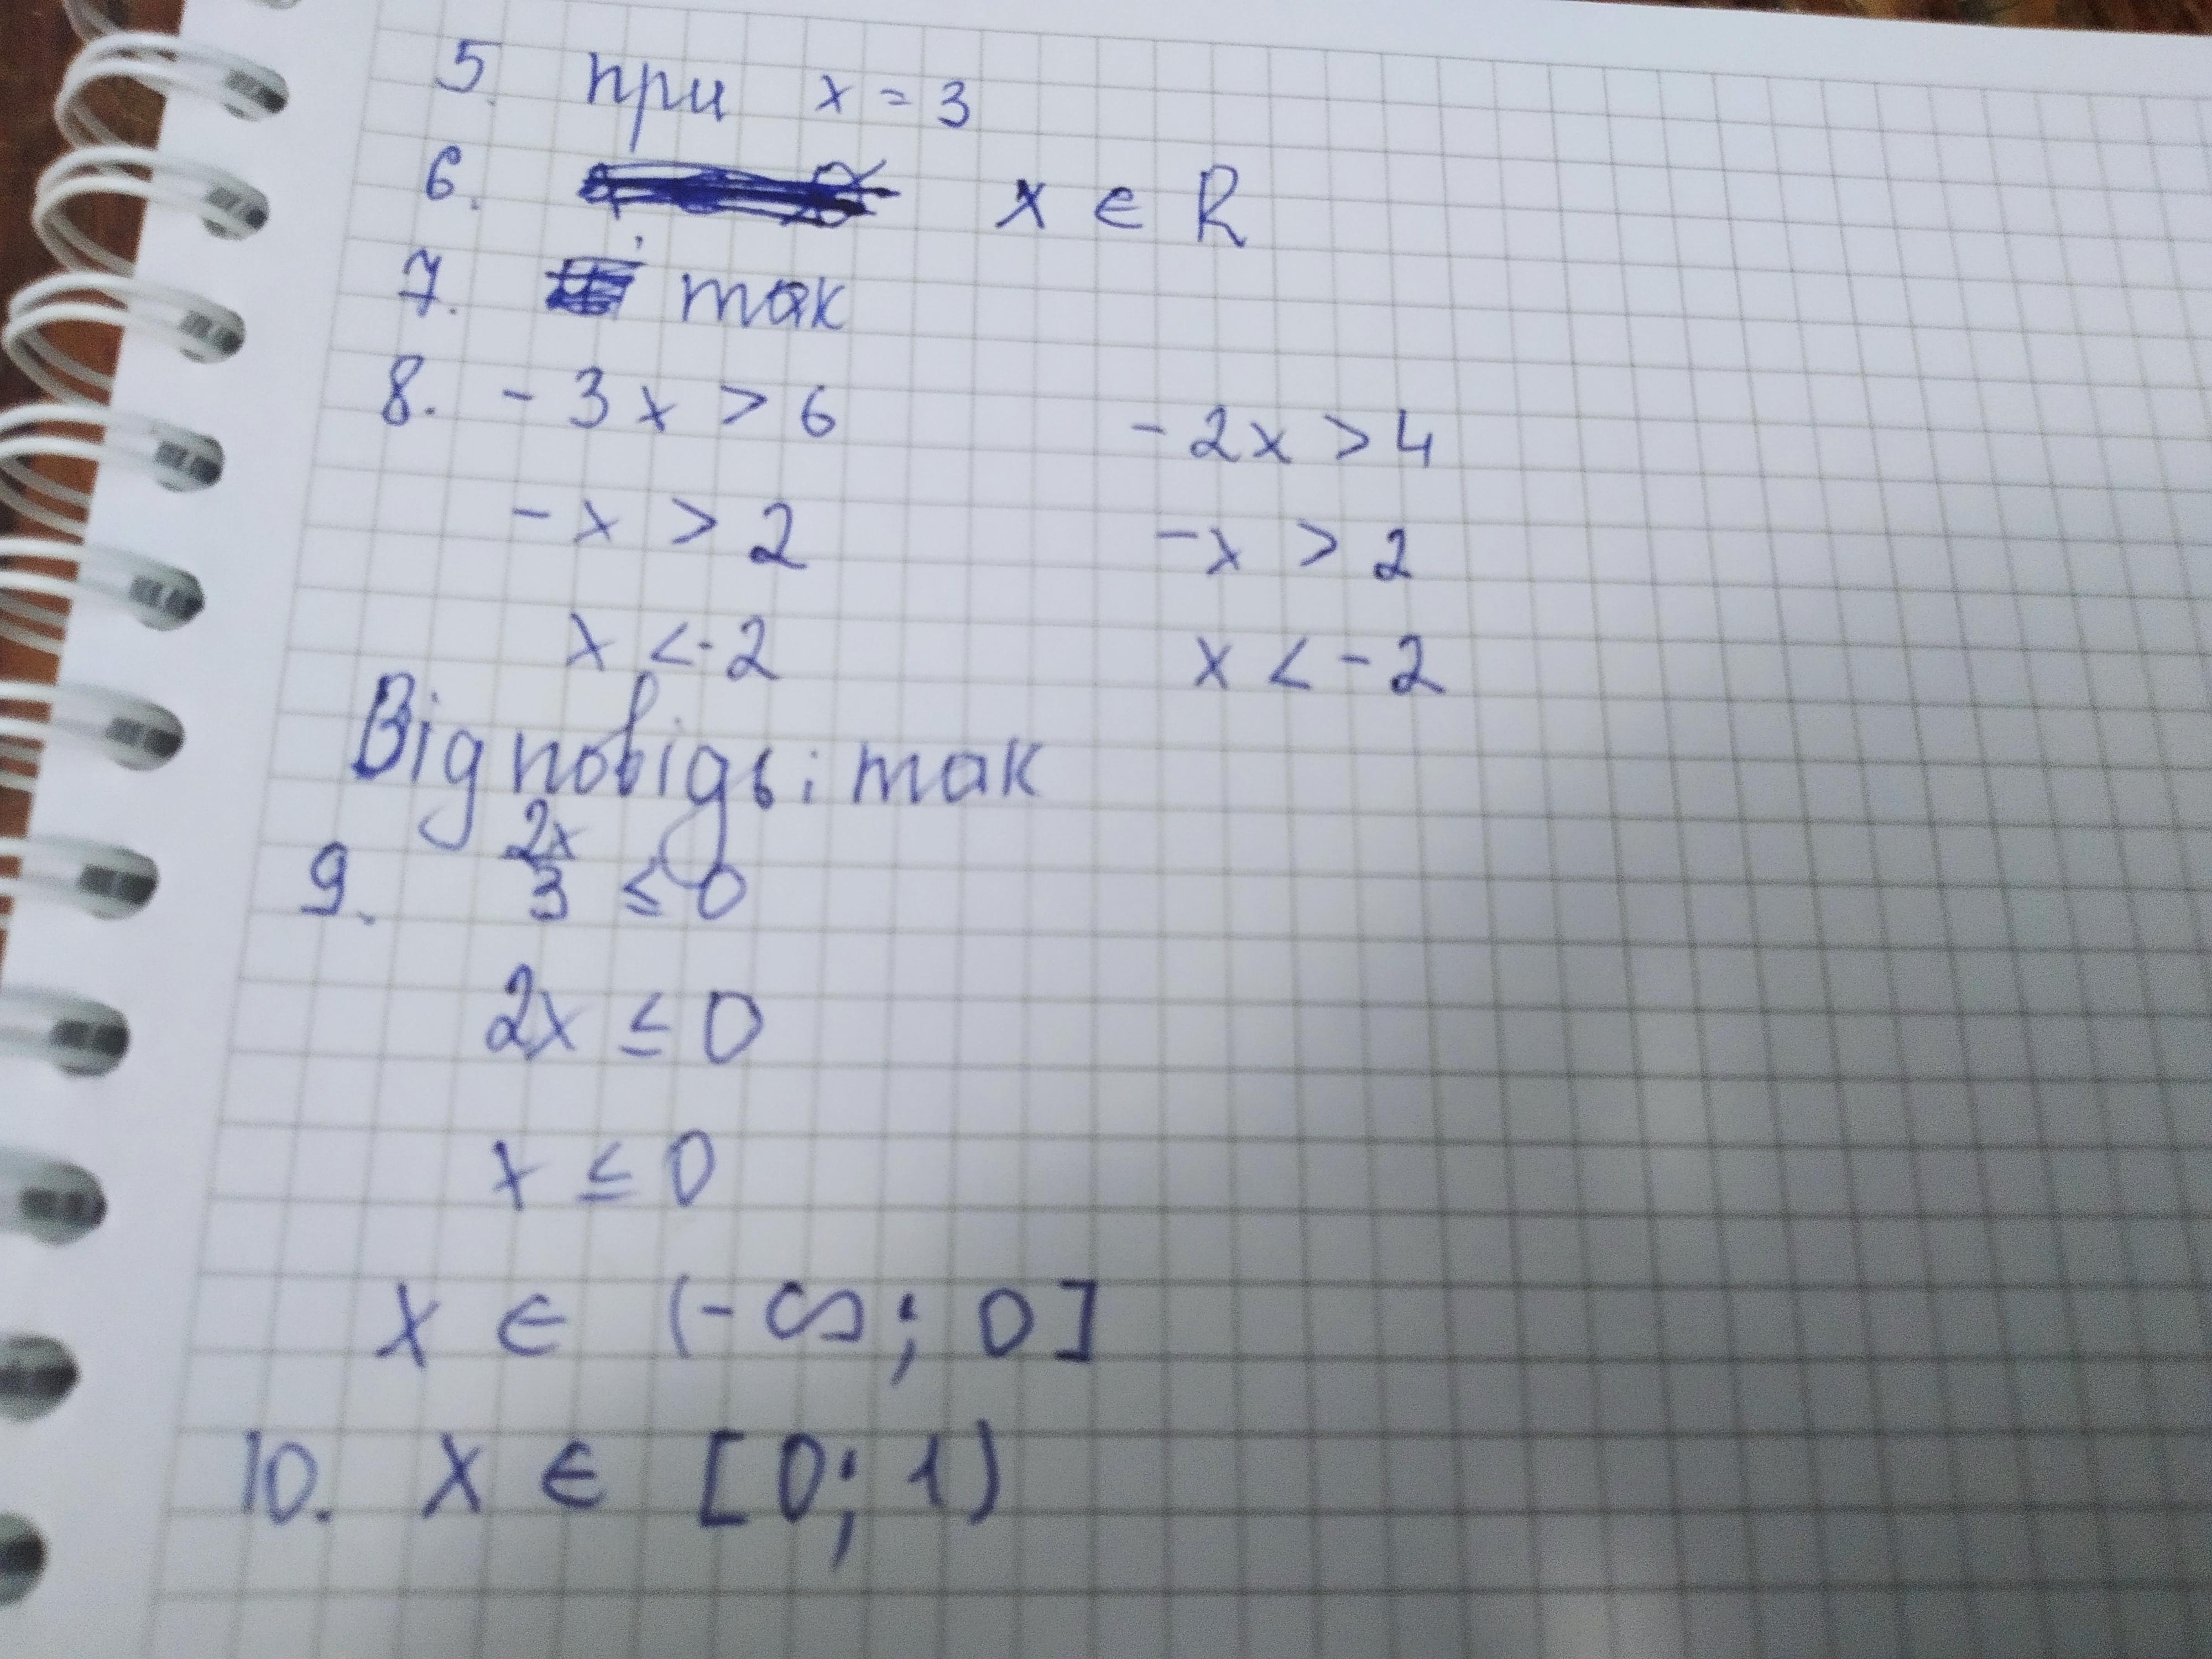 5. при x = 3
6. x ∈ R
7. так
8. - 3x > 6 - 2x > 4
- x > 2 - x > 2
x < - 2 x < - 2
Відповідь: так
9. 2x/3 ≤ 0
2x ≤ 0
x ≤ 0
x ∈ (- ∞; 0]
10. x ∈ [0; 1)